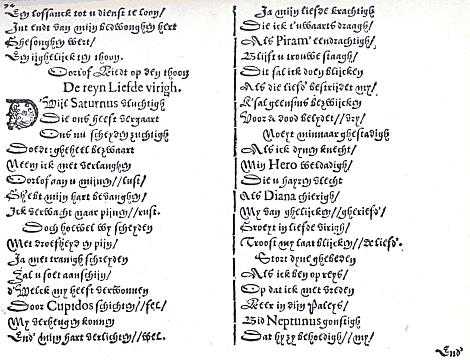 94
Een lossanck tot u dienst te loon/
Int endt van mijn bedwonghen hert
Ghesonghen wert/
Een ijghelijck in thoon.
Oorlof Riedt op den thoon
De reyn Liefde virigh.
DWijl Saturnus vluchtigh
Die ons heeft vergaart
Ons nu scheyden zuchtigh
Doedt: gheheel bezwaart
Neem ick met verlanghen
Oorlof aan u mijnen//lust/
S'hebt mijn hart bevanghen/
Ick verwacht naar pijnen//rust.
Doch hoewel wy scheyden
Met droefheyd en pijn/
Ja met tranigh schreyden
Zal u soet aanschijn/
d'Welck my heeft verwonnen
Door Cupidos schichten//fel/
My verheugen konnen
End' mijn hart verlichten//wel.
Ja mijn liefde krachtigh
Die ick t'uwaarts draagh/
Als Piram' eendrachtigh/
Blijft u trouwe staagh/
Dit sal ick doen blijcken
Als die liefd' bestrijdet my/
K'sal geensins bezwijcken
Voor & door belydet//vry/
Noeyt minnaar ghestadigh
Als ick dynen knecht/
Mijn Hero weldadigh/
Die u hayren vlecht
Als Diana chierigh/
My van ghelijcken//gheriefd'/
Groeyt in liefde virigh/
Troost my laat blijcken//de liefd'.
Stort dyne ghebeden
Als ick ben op reys/
Op dat ick met vreden
Keer in dijn Paleys/
Bid Neptunus gonstigh
Dat hy zy behoedigh//my/
End'